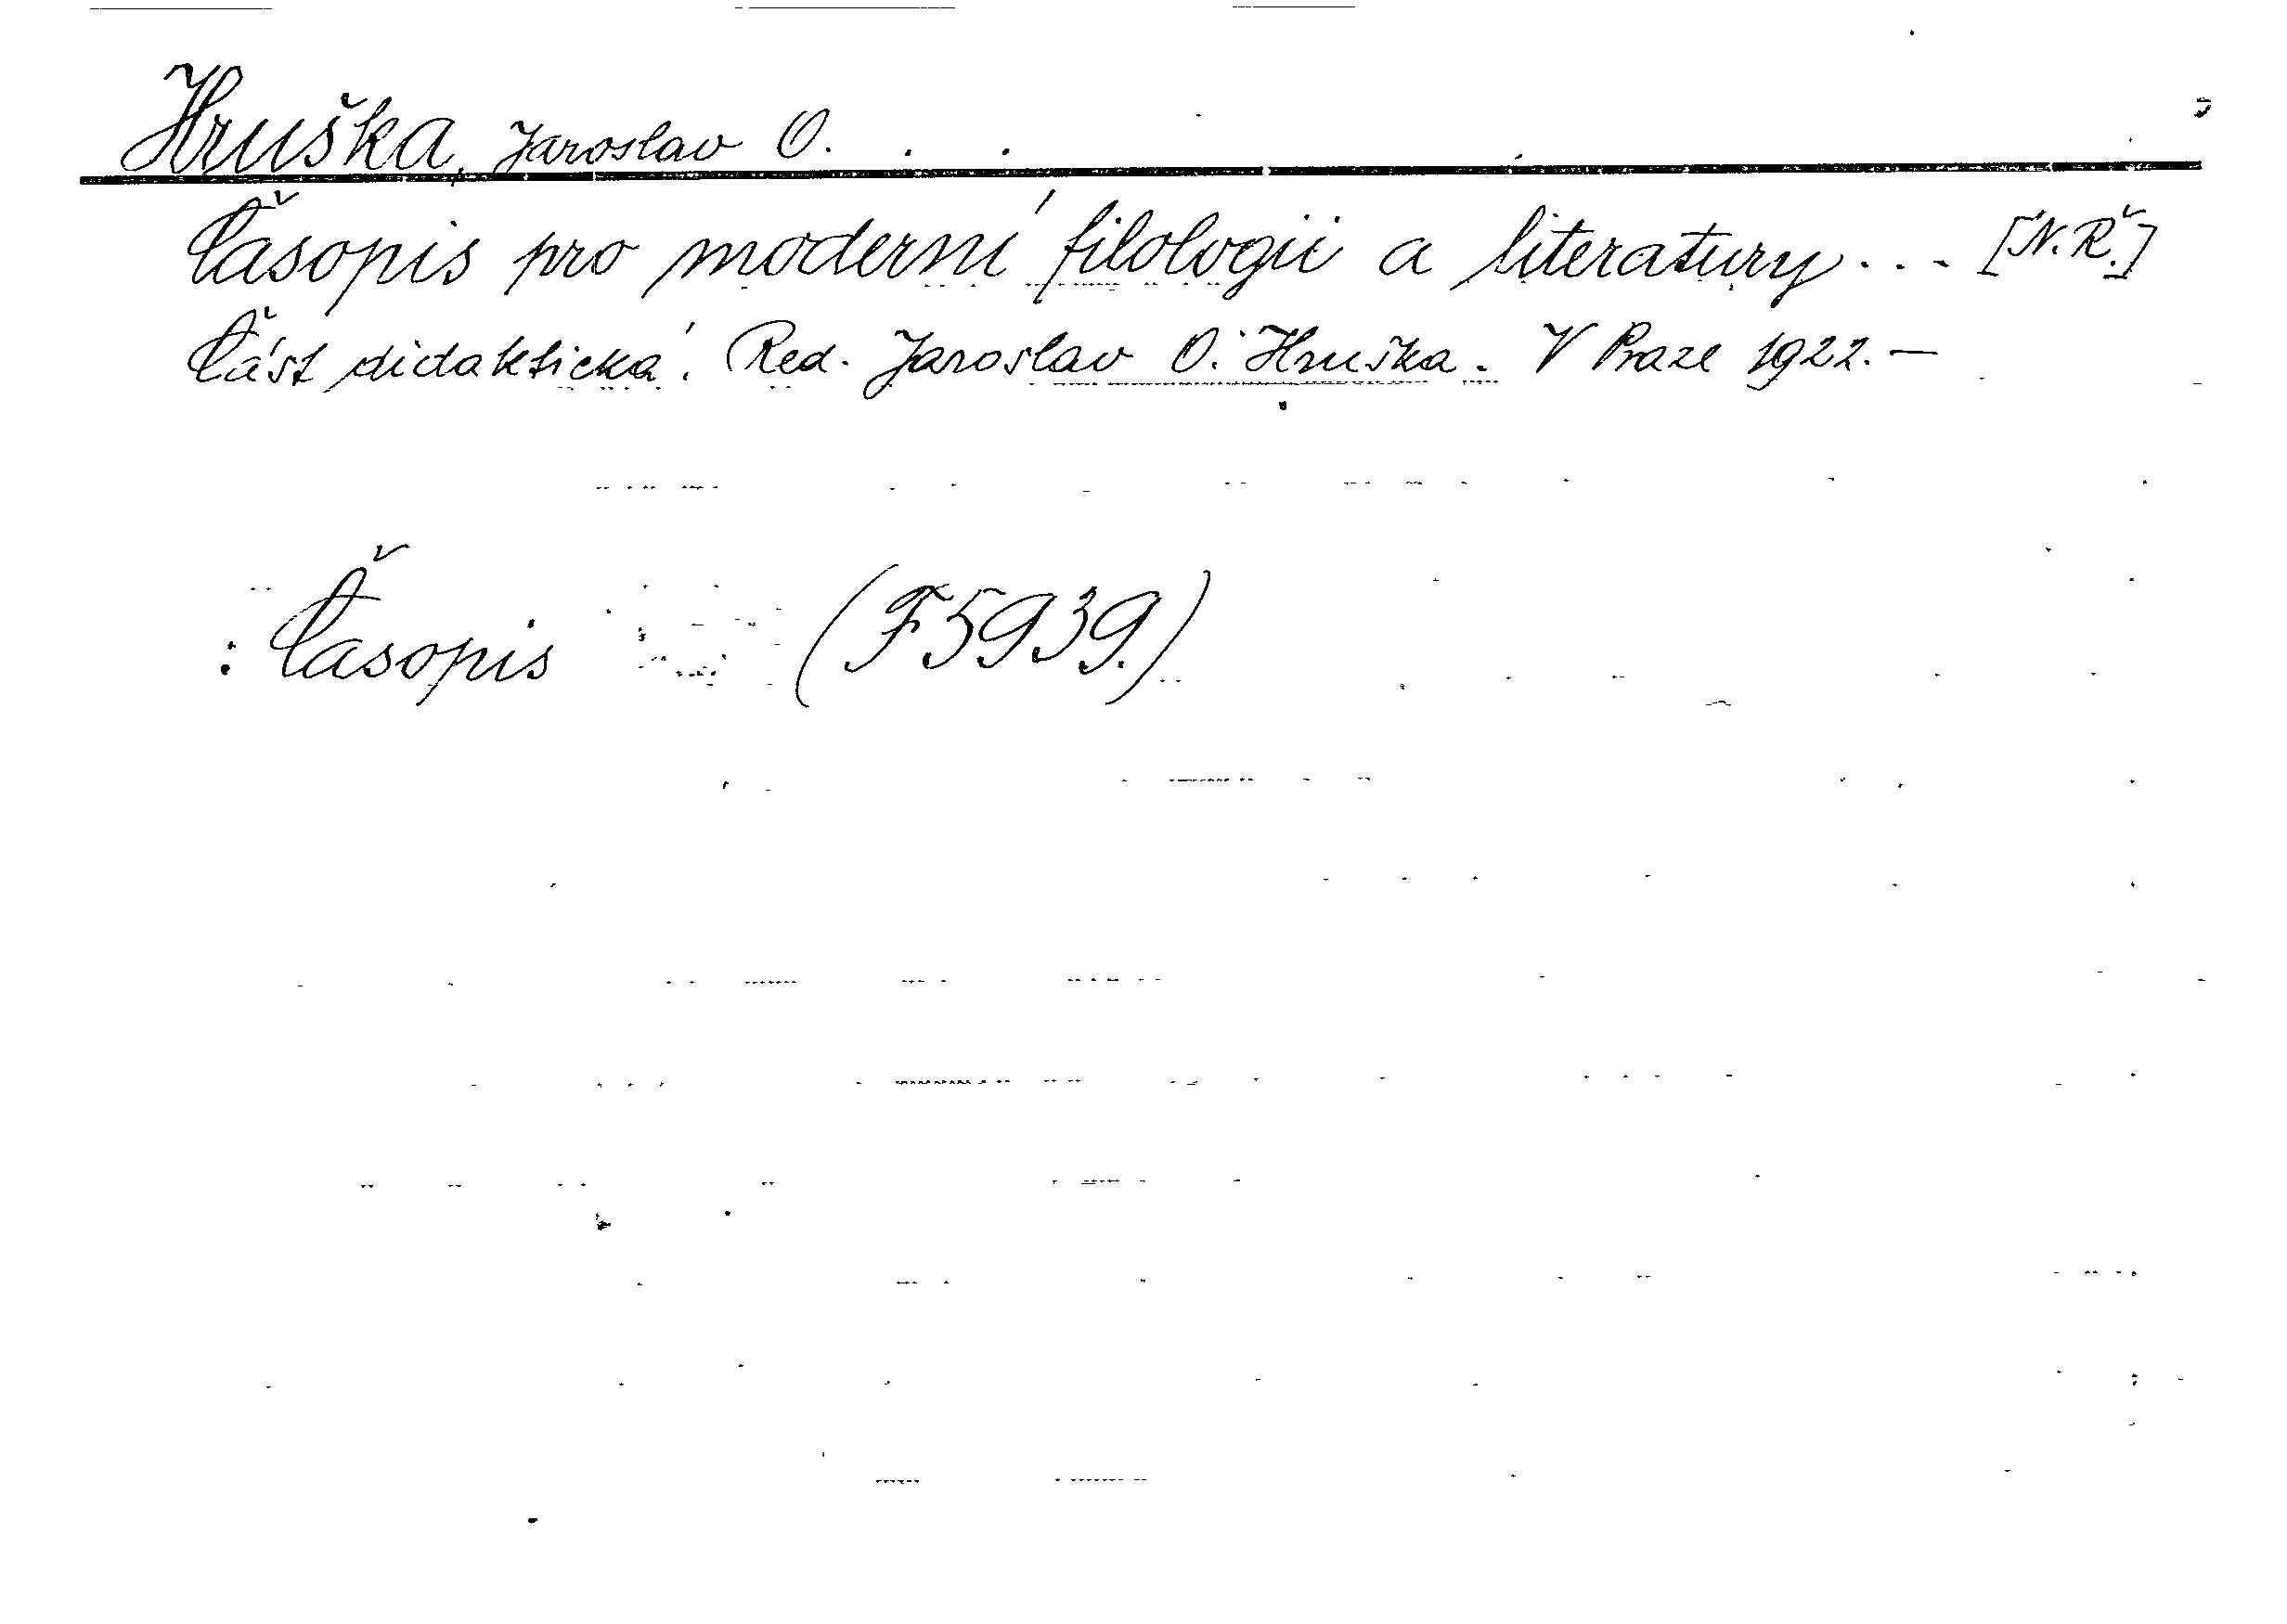 Hruška, Jaroslav O.
Časopis pro moderní filologii a literatury... [N.Ř.]
Část didaktická. Red. Jaroslav O. Hruška. V Praze 1922.—
: Časopis (F5939.)